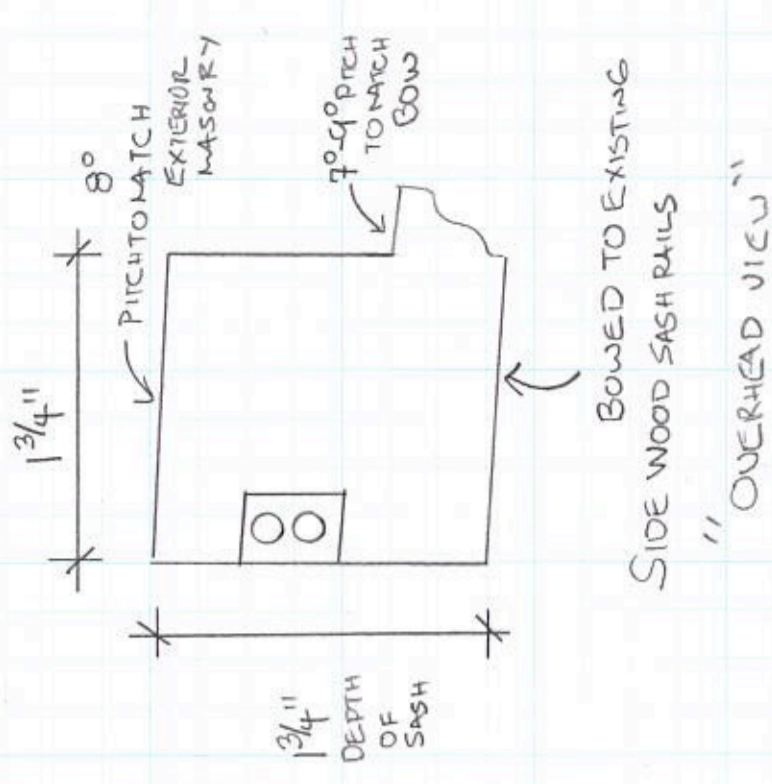 1 3/4"
8°
PITCH TO MATCH
EXTERIOR
MASONRY
7°-9° PITCH
TO MATCH
BOW
1 3/4"
DEPTH
OF
SASH
BOWED TO EXISTING
SIDE WOOD SASH RAILS
"OVERHEAD VIEW"